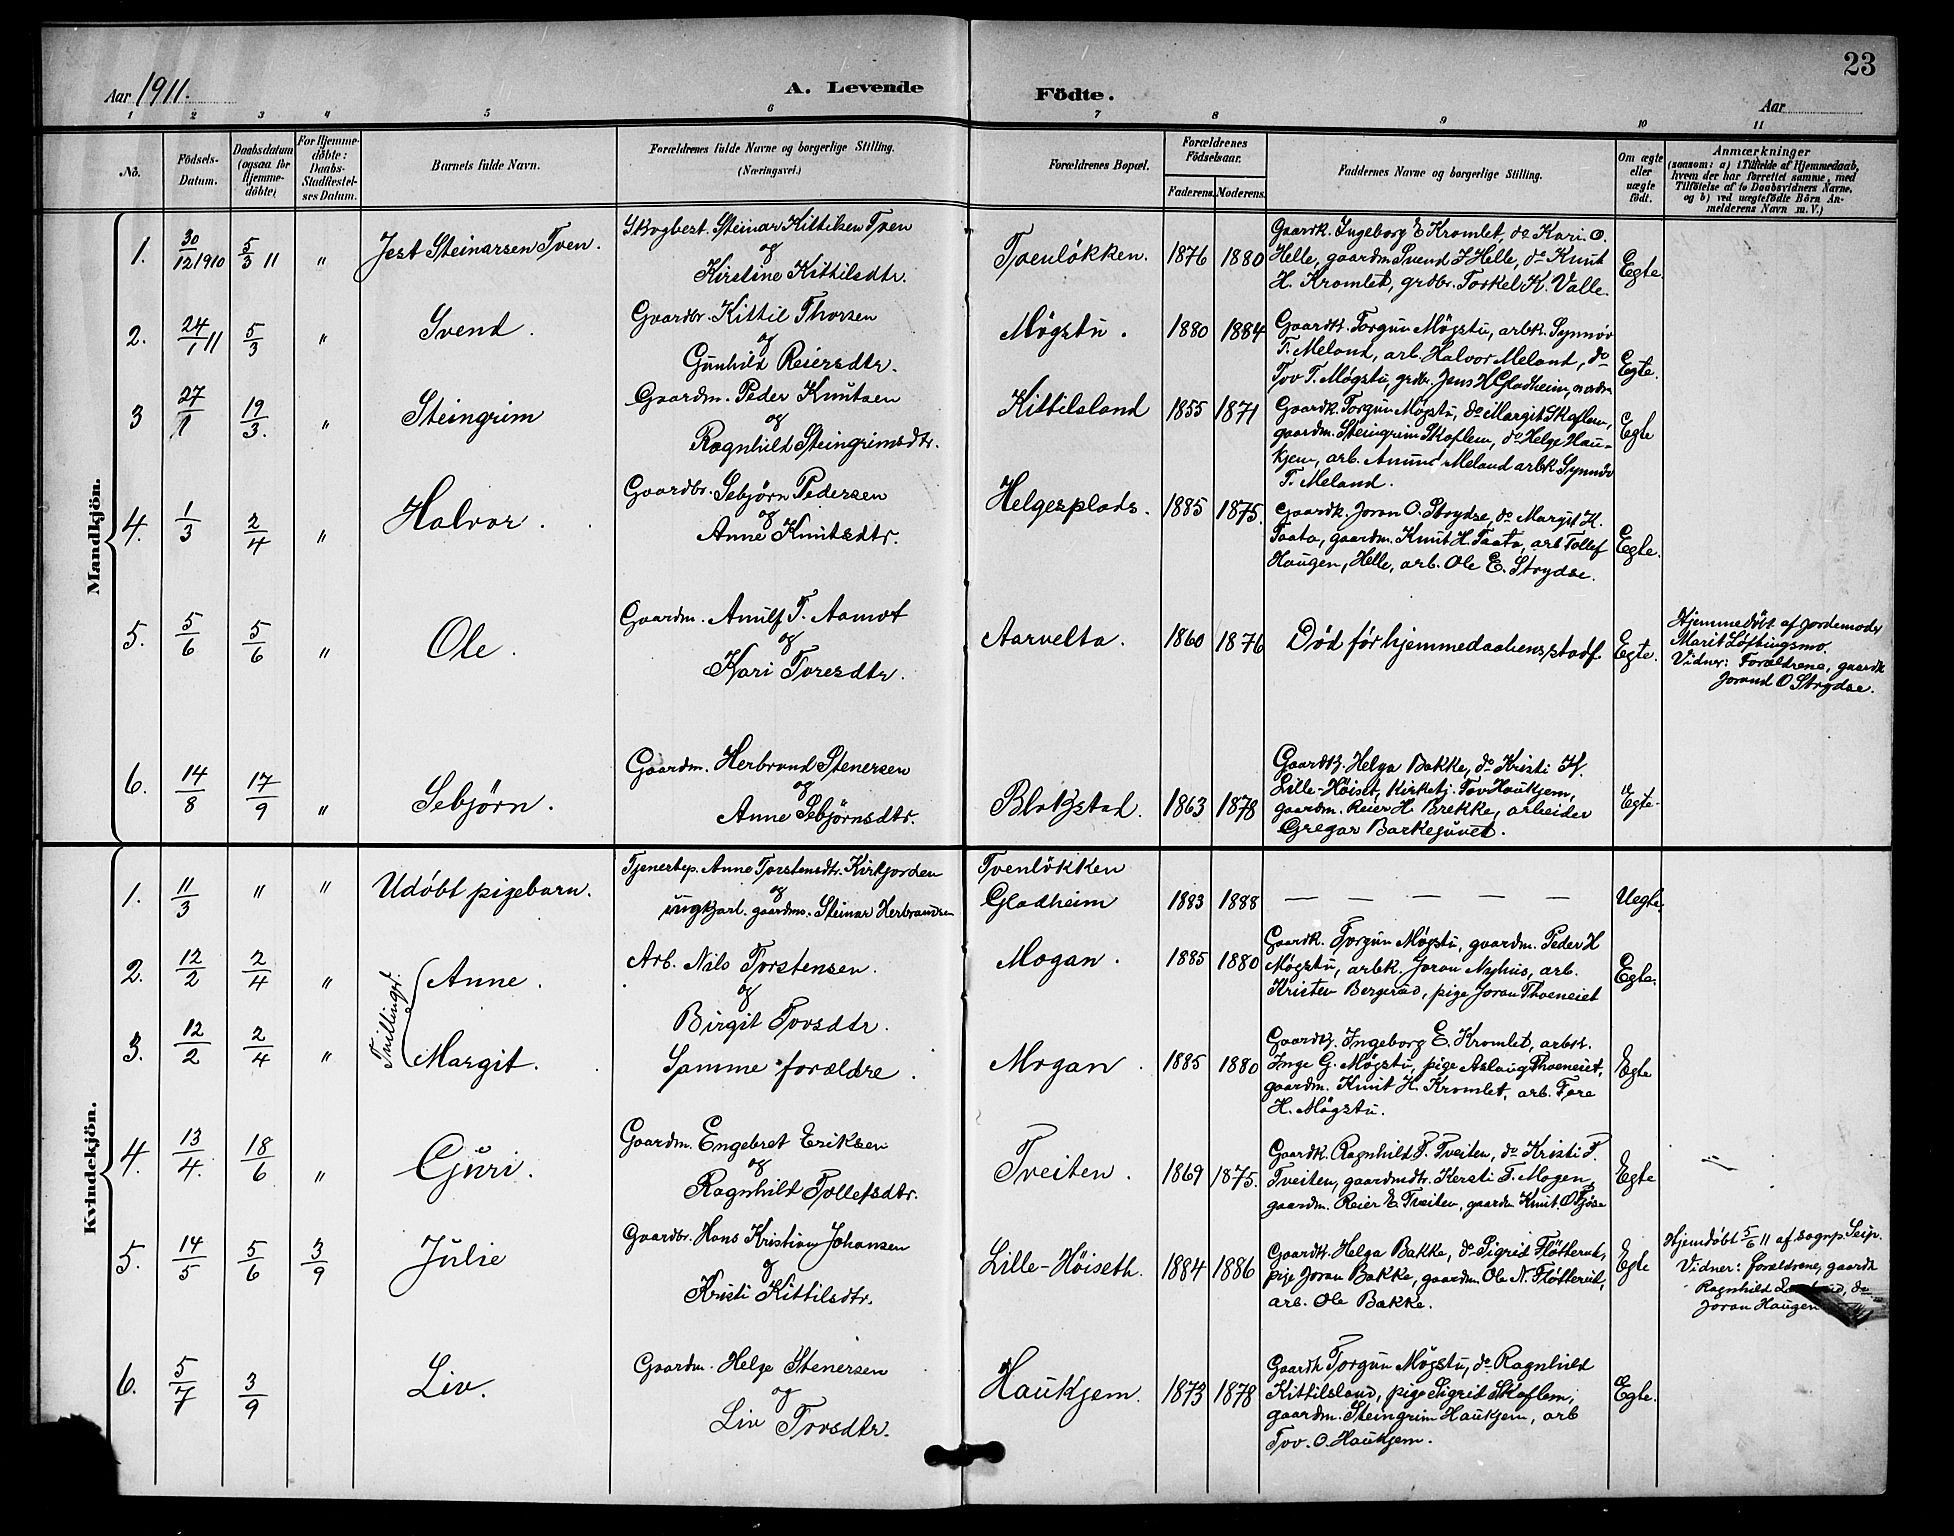 23
Aar 1911. A. Levende Födte. Aar
1 2 3 4 5 6 7 8 9 10 11
No. Födsels-Datum. Daabsdatum (ogsaa for Hjemme-döbte) For Hjemme-döbte: Daabs-Stadfæstel-ses Datum. Barnets fulde Navn. Forældrenes fulde Navne og borgerlige Stilling. (Næringsvei.) Forældrenes Bopæl. Forældrenes Födselsaar. Faderens. Moderens. Faddernes Navne og borgerlige Stilling. Om ægte eller uægte födt. Anmærkninger (saasom: a) i Tilfælde af Hjemmedaab, hvem der har forrettet samme, med Tilföielse af to Daabsvidners Navne, og b) ved uægtefödte Börn An-melderens Navn m. V.)
Mandkjön.
1. 30/12 1910 5/3 11 " Jest Steinarsen Tven. Skogbest. Steinar Kittilsen Tven
og
Kirstine Kittilsdtr.
Tvenløkken. 1876 1880
Gaardk. Ingeborg E Kromlet, do Kari O.
Helle, gaardm Svend J Helle, do Knut
H. Kromlet, grdbr. Torkel K. Valle.
Egte.
2. 24/1 11 5/3 " Svend. Gaardbr. Kittil Thorsen
og
Gunhild Reiersdtr.
Møgstu. 1880 1884
Gaardk. Torgun Møgstu, arbk. Synnöv
T. Meland, arb. Halvor Meland, do
Tov T. Møgstu, grdbr. Jens H Gladheim,
Egte.
3 27/1 19/3. " Steingrim Gaardm. Peder Knutsen
og
Ragnhild Steingrimsdtr.
Kittilsland 1855 1871
Gaardk. Torgun Møgstu, do Margit Skaflem,
gaardm. Steingrim Skaflem, do Helge Hau-
kjem, arb. Anund Meland arbk. Synnöv
T. Meland.
Egte
4. 1/3 2/4 " Halvor. Gaardbr. Sebjørn Pedersen
og
Anne Knutsdtr.
Helgesplads. 1885 1875.
Gaardk. Joran O. Strydse, do Margit K.
Taata, gaardm. Knut H. Taata, arb Tollef
Haugen, Helle, arb. Ole E. Strydse.
Egte.
5. 5/6 5/6 " Ole. Gaardm. Anulf T. Aamot
og
Kari Toresdtr.
Aarvelta. 1860 1876 Död för hjemmedaabens stadf. Egte.
Hjemmedöbt af jordemoder
Marit Løftingsmo.
Vidner: Forældrene, gaardk
Jorand O Strydse.
6. 14/8 17/9 " Sebjørn. Gaardm. Herbrand Stenersen
og
Anne Sebjørnsdtr.
Blokstad. 1863 1878
Gaardk. Helga Bakke, do Kristi H.
Lille-Høiset, kirketj. Tov Haukjem,
gaardm. Reier H. Brekke, arbeider
Gregar Barkejuvet.
Egte.
Kvindekjön.
1. 11/3 " " Udøbt pigebarn. Tjenestep. Anne Torstensdtr. Kirkjorden
og
ungkarl. gaardm. Steinar Herbrandsen
Tvenløkken
Gladheim 1883 1888 — — — — — Uegte.
2. 12/2 2/4 " Tvillinger. Anne. Arb. Nils Torstensen.
og
Birgit Tovsdtr.
Mogan. 1885 1880
Gaardk. Torgun Møgstu, gaardm. Peder H
Møgstu, arbk. Joran Nyhus, arb.
Kristen Bergerud, pige Joran Thveneiet
Egte.
3. 12/2 2/4 " Margit. Samme forældre. Mogan. 1885 1880
Gaardk. Ingeborg E. Kromlet, arbst.
Inge G. Møgstu, pige Aslaug Thveneiet,
gaardm. Knut H. Kromlet, arb. Tore
H. Møgstu.
Egte
4. 13/4. 18/6 " Guri. Gaardm. Engebret Eriksen
og
Ragnhild Tollefsdtr.
Tveiten. 1869 1875.
Gaardk. Ragnhild T. Tveiten, do Kristi T.
Tveiten, gaardmdtr. Kersti T. Mogen,
gaardm. Reier E Tveiten, gaardm Knut O Fjøse
Egte
5. 14/5 5/6 3/9 Julie Gaardbr. Hans Kristian Johansen
og
Kristi Kittilsdtr.
Lille-Höiseth. 1884 1886
Gaardk. Helga Bakke, do Sigrid Fløtterud,
pige Joran Bakke, gaardm Ole N. Fløtterud,
arb. Ole Bakke.
Egte
Hjemdøbt 5/6 11 af sogrp. Seip.
Vidner: forældrene, gaardk
Ragnhild do
Joran Haugen
6. 5/7 3/9 Liv. Gaardm. Helge Stenersen
og
Liv Tovsdtr.
Haukjem. 1873 1878
Gaardk Torgun Møgstu, do Ragnhild
Kittilsland, pige Sigrid Skaflem,
gaardm. Steingrim Haukjem, arb
Tov. O. Haukjem.
Egte.